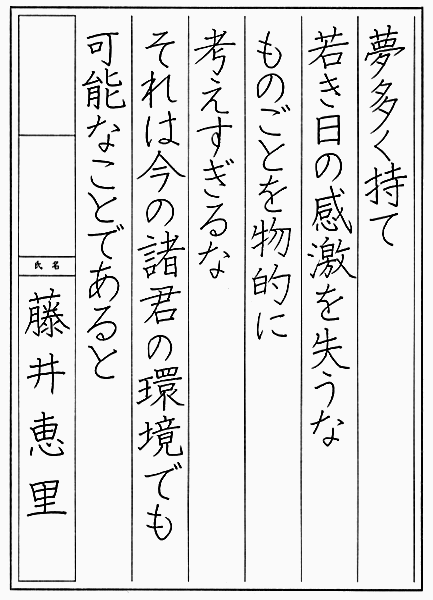 夢多く持て
若き日の感激を失うな
ものごとを物的に
考えすぎるな
それは今の諸君の環境でも
可能なことであると
氏名
藤井恵里